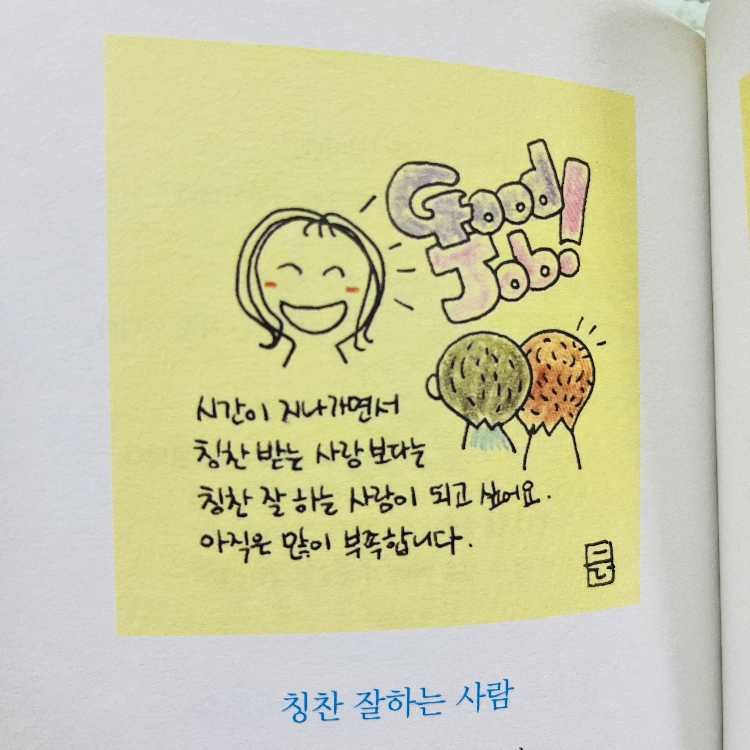 Good
Job!
시간이 지나가면서
칭찬 받는 사람보다는
칭찬 잘 하는 사람이 되고 싶어요.
아직은 많이 부족합니다.
칭찬 잘하는 사람